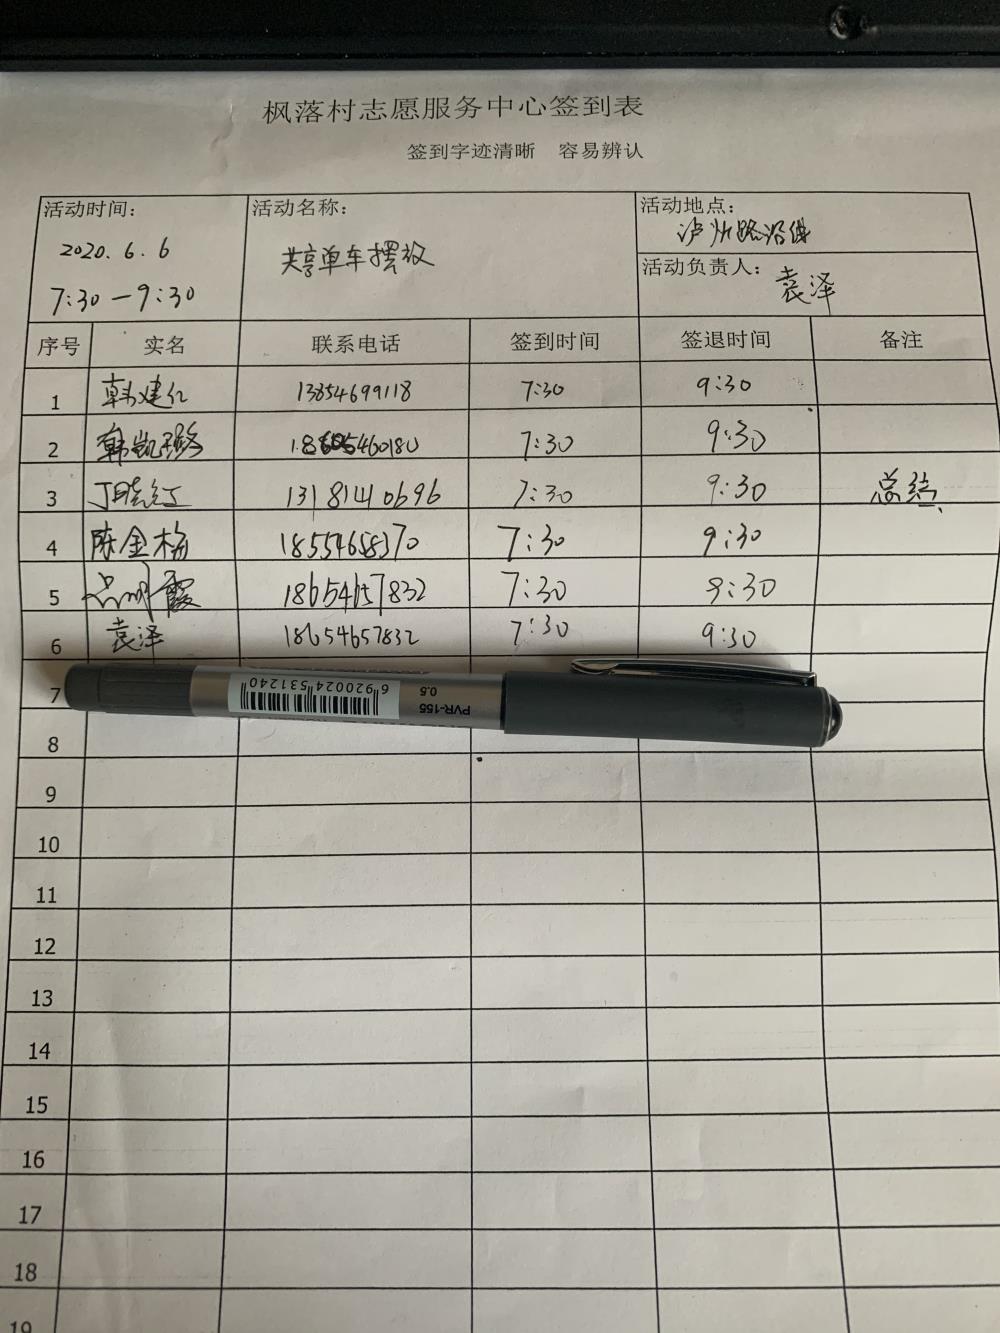 枫落村志愿服务中心签到表
签到字迹清晰 容易辨认
活动时间: 活动名称: 活动地点:
2020.6.6 共享单车摆放 泸州路沿线
7:30-9:30 活动负责人: 袁泽
序号 实名 联系电话 签到时间 签退时间 备注
1 韩建红 13854699118 7:30 9:30
2 韩凯璐 7:30 9:30
3 丁晓红 13181410696 7:30 9:30 总结
4 陈金梅 18554658370 7:30 9:30
5 霞 18654657832 7:30 9:30
6 袁泽 18654657832 7:30 9:30
7
6 920024 531240
0.5
PVR-155
8
9
10
11
12
13
14
15
16
17
18
19